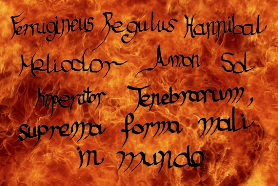 Ferrugineus Regulus Hannibal
Heliodor Amon Sol
Imperator Tenebrarum,
suprema forma mali
in mundo